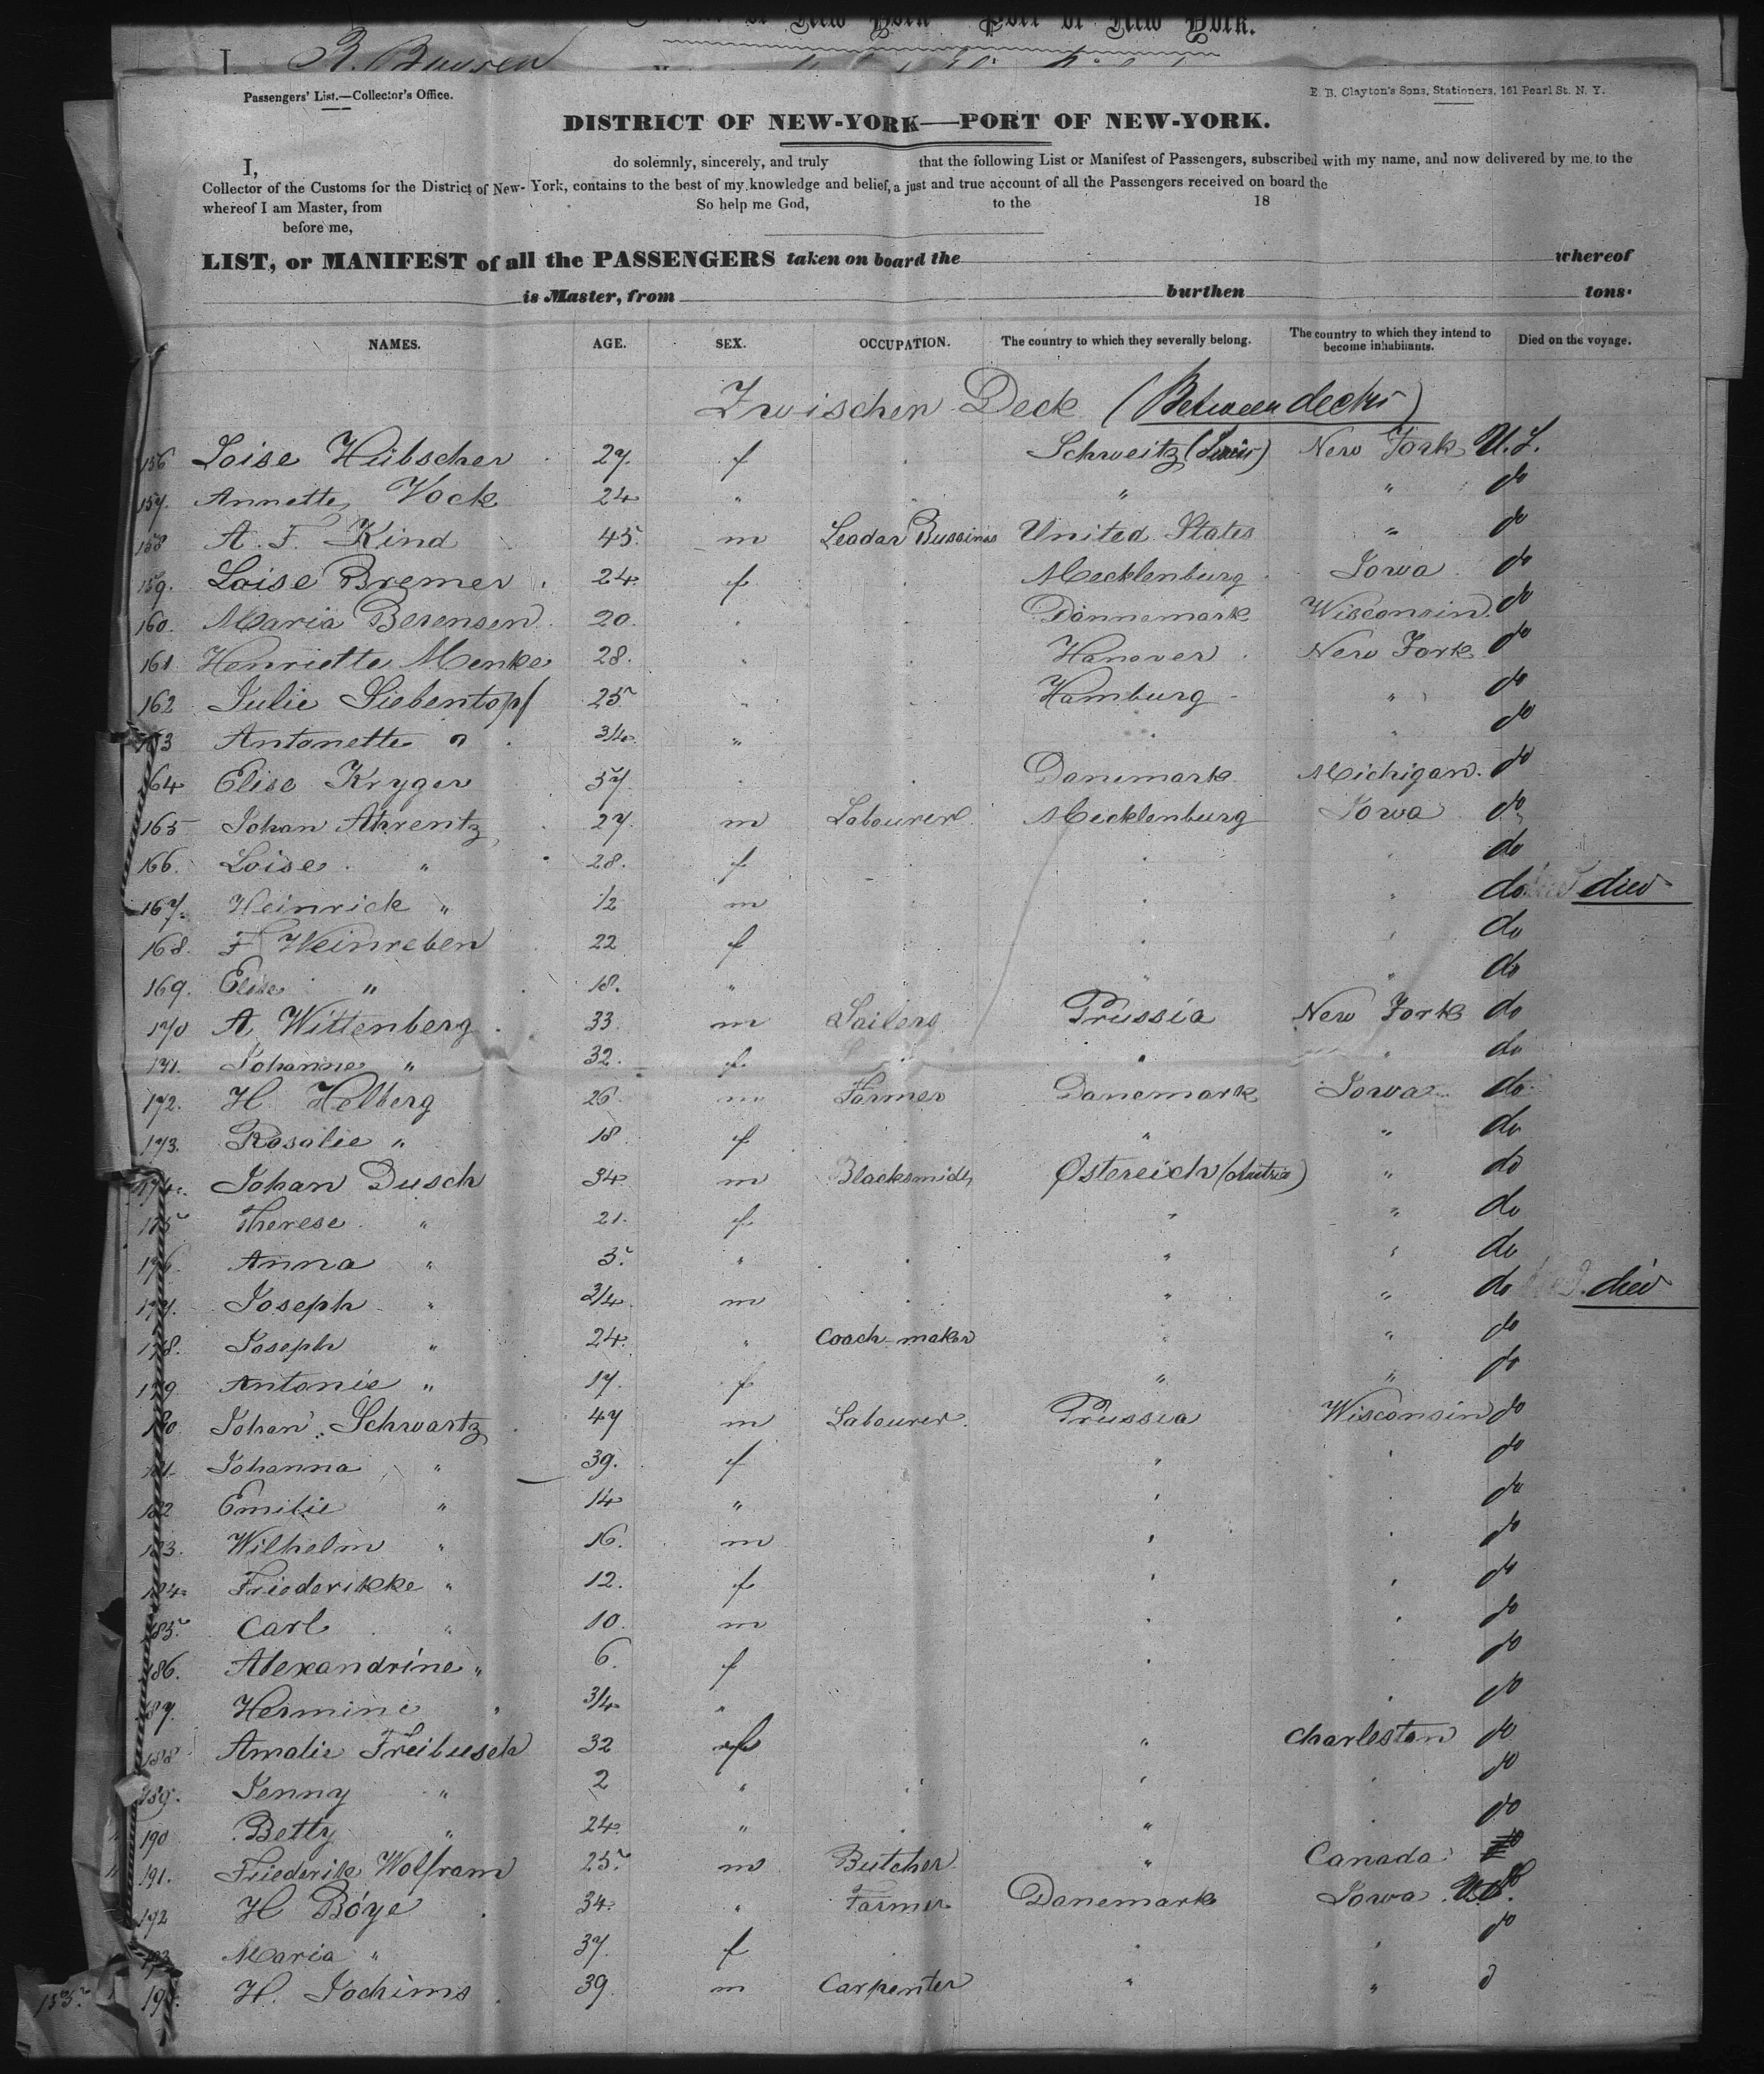 of New York Port of New York.
I, R.
Passengers' List.—Collector's Office.
E. B. Clayton's Sons, Stationers, 161 Pearl St. N. Y.
DISTRICT OF NEW-YORK—PORT OF NEW-YORK.
I, do solemnly, sincerely, and truly that the following List or Manifest of Passengers, subscribed with my name, and now delivered by me to the
Collector of the Customs for the District of New-York, contains to the best of my knowledge and belief, a just and true account of all the Passengers received on board the
whereof I am Master, from So help me God, to the 18
before me,
LIST, or MANIFEST of all the PASSENGERS taken on board the whereof
is Master, from burthen tons.
NAMES. AGE. SEX. OCCUPATION. The country to which they severally belong. The country to which they intend to become inhabitants. Died on the voyage.
Zwischen Deck (Between decks)
156 Loise Hübscher 27. f Schweitz (Suiss) New York U.S.
157. Annette Vock 24 " " " do
158 A. F. Kind 45. m Leadar Bussines United States " do
159. Loise Bremer 24 f Mecklenburg Iowa do
160. Maria Berensen 20. " Dännemark Wisconsin do
161 Henriette Menke 28. " Hanover New York do
162 Julie Siebentopf 25 " Hamburg " do
163 Antonette " 3/4 " " " do
164 Elise Kryger 57. " Danemark Michigan. do
165 Johan Ahrentz 27. m Labourer Mecklenburg Iowa do
166. Loise " 28. f " " do
167. Heinrick " 1/2 m " " do died
168. F Weinreben 22 f " " do
169. Elise " 18. " " " do
170 A. Wittenberg 33 m Sailers Prussia New York do
171. Johanne " 32. f " " " do
172. H. Helberg 26 m Farmer Danemark Iowa do
173. Rosalie " 18 f " " do
174. Johan Dusch 34 m Blacksmidh Østereich (Austria) " do
175 Therese " 21. f " " do
176. Anna " 3. " " " do
177. Joseph " 3/4 m " " do died
178. Joseph " 24. " Coach-maker " " do
179 Antonie " 17. f " " do
180. Johan Schwartz 47 m Labourer Prussia Wisconsin do
181. Johanna " 39. f " " do
182 Emilie " 14 " " " do
183. Wilhelm " 16. m " " do
184. Friederikke " 12. f " " do
185. Carl " 10. m " " do
186. Alexandrine " 6. f " " do
187. Hermine " 3/4 " " " do
188 Amalie Freibusch 32 f " Charleston do
189. Jenny " 2 " " " do
190 Betty " 24 " " " do
191. Friederik Wolfram 25. m Butcher " Canada
192 H Böye 34. " Farmer Danemark Iowa U.S.
193 Maria " 37. f " " do
194. H. Jochims 39 m Carpenter " " d
155.